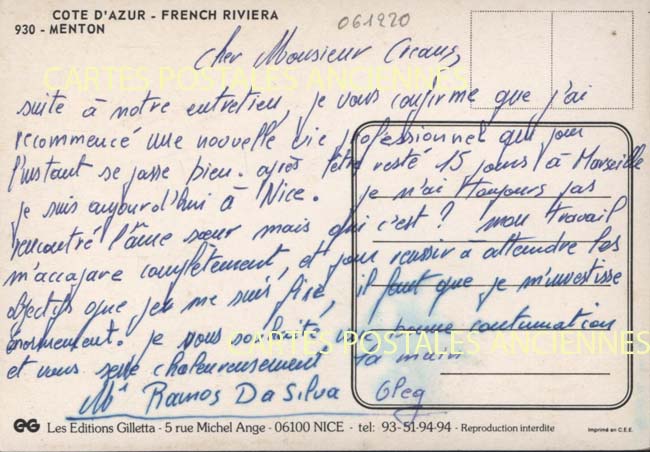 COTE D'AZUR - FRENCH RIVIERA
930 - MENTON
061220
Cher Monsieur
CARTES POSTALES ANCIENNES
suite à notre entretien, je vous confirme que j'ai
recommencé une nouvelle vie professionnel qui pour
l'instant se passe bien. après être resté 15 jours à Marseille
je suis aujourd'hui à Nice. je n'ai toujours pas
rencontré l'âme sœur mais qui c'est? mon travail
m'accapare complètement, et pour reussir a atteindre les
objectifs que je me suis fixé, il faut que je m'investisse
énormement. je vous souhaite une bonne continuation
CARTES POSTALES ANCIENNES
et vous serre chaleureusement la main
Mr Ramos Da Silva
EG Les Editions Gilletta - 5 rue Michel Ange - 06100 NICE - tel: 93-51-94-94 - Reproduction interdite
Imprimé en C.E.E.